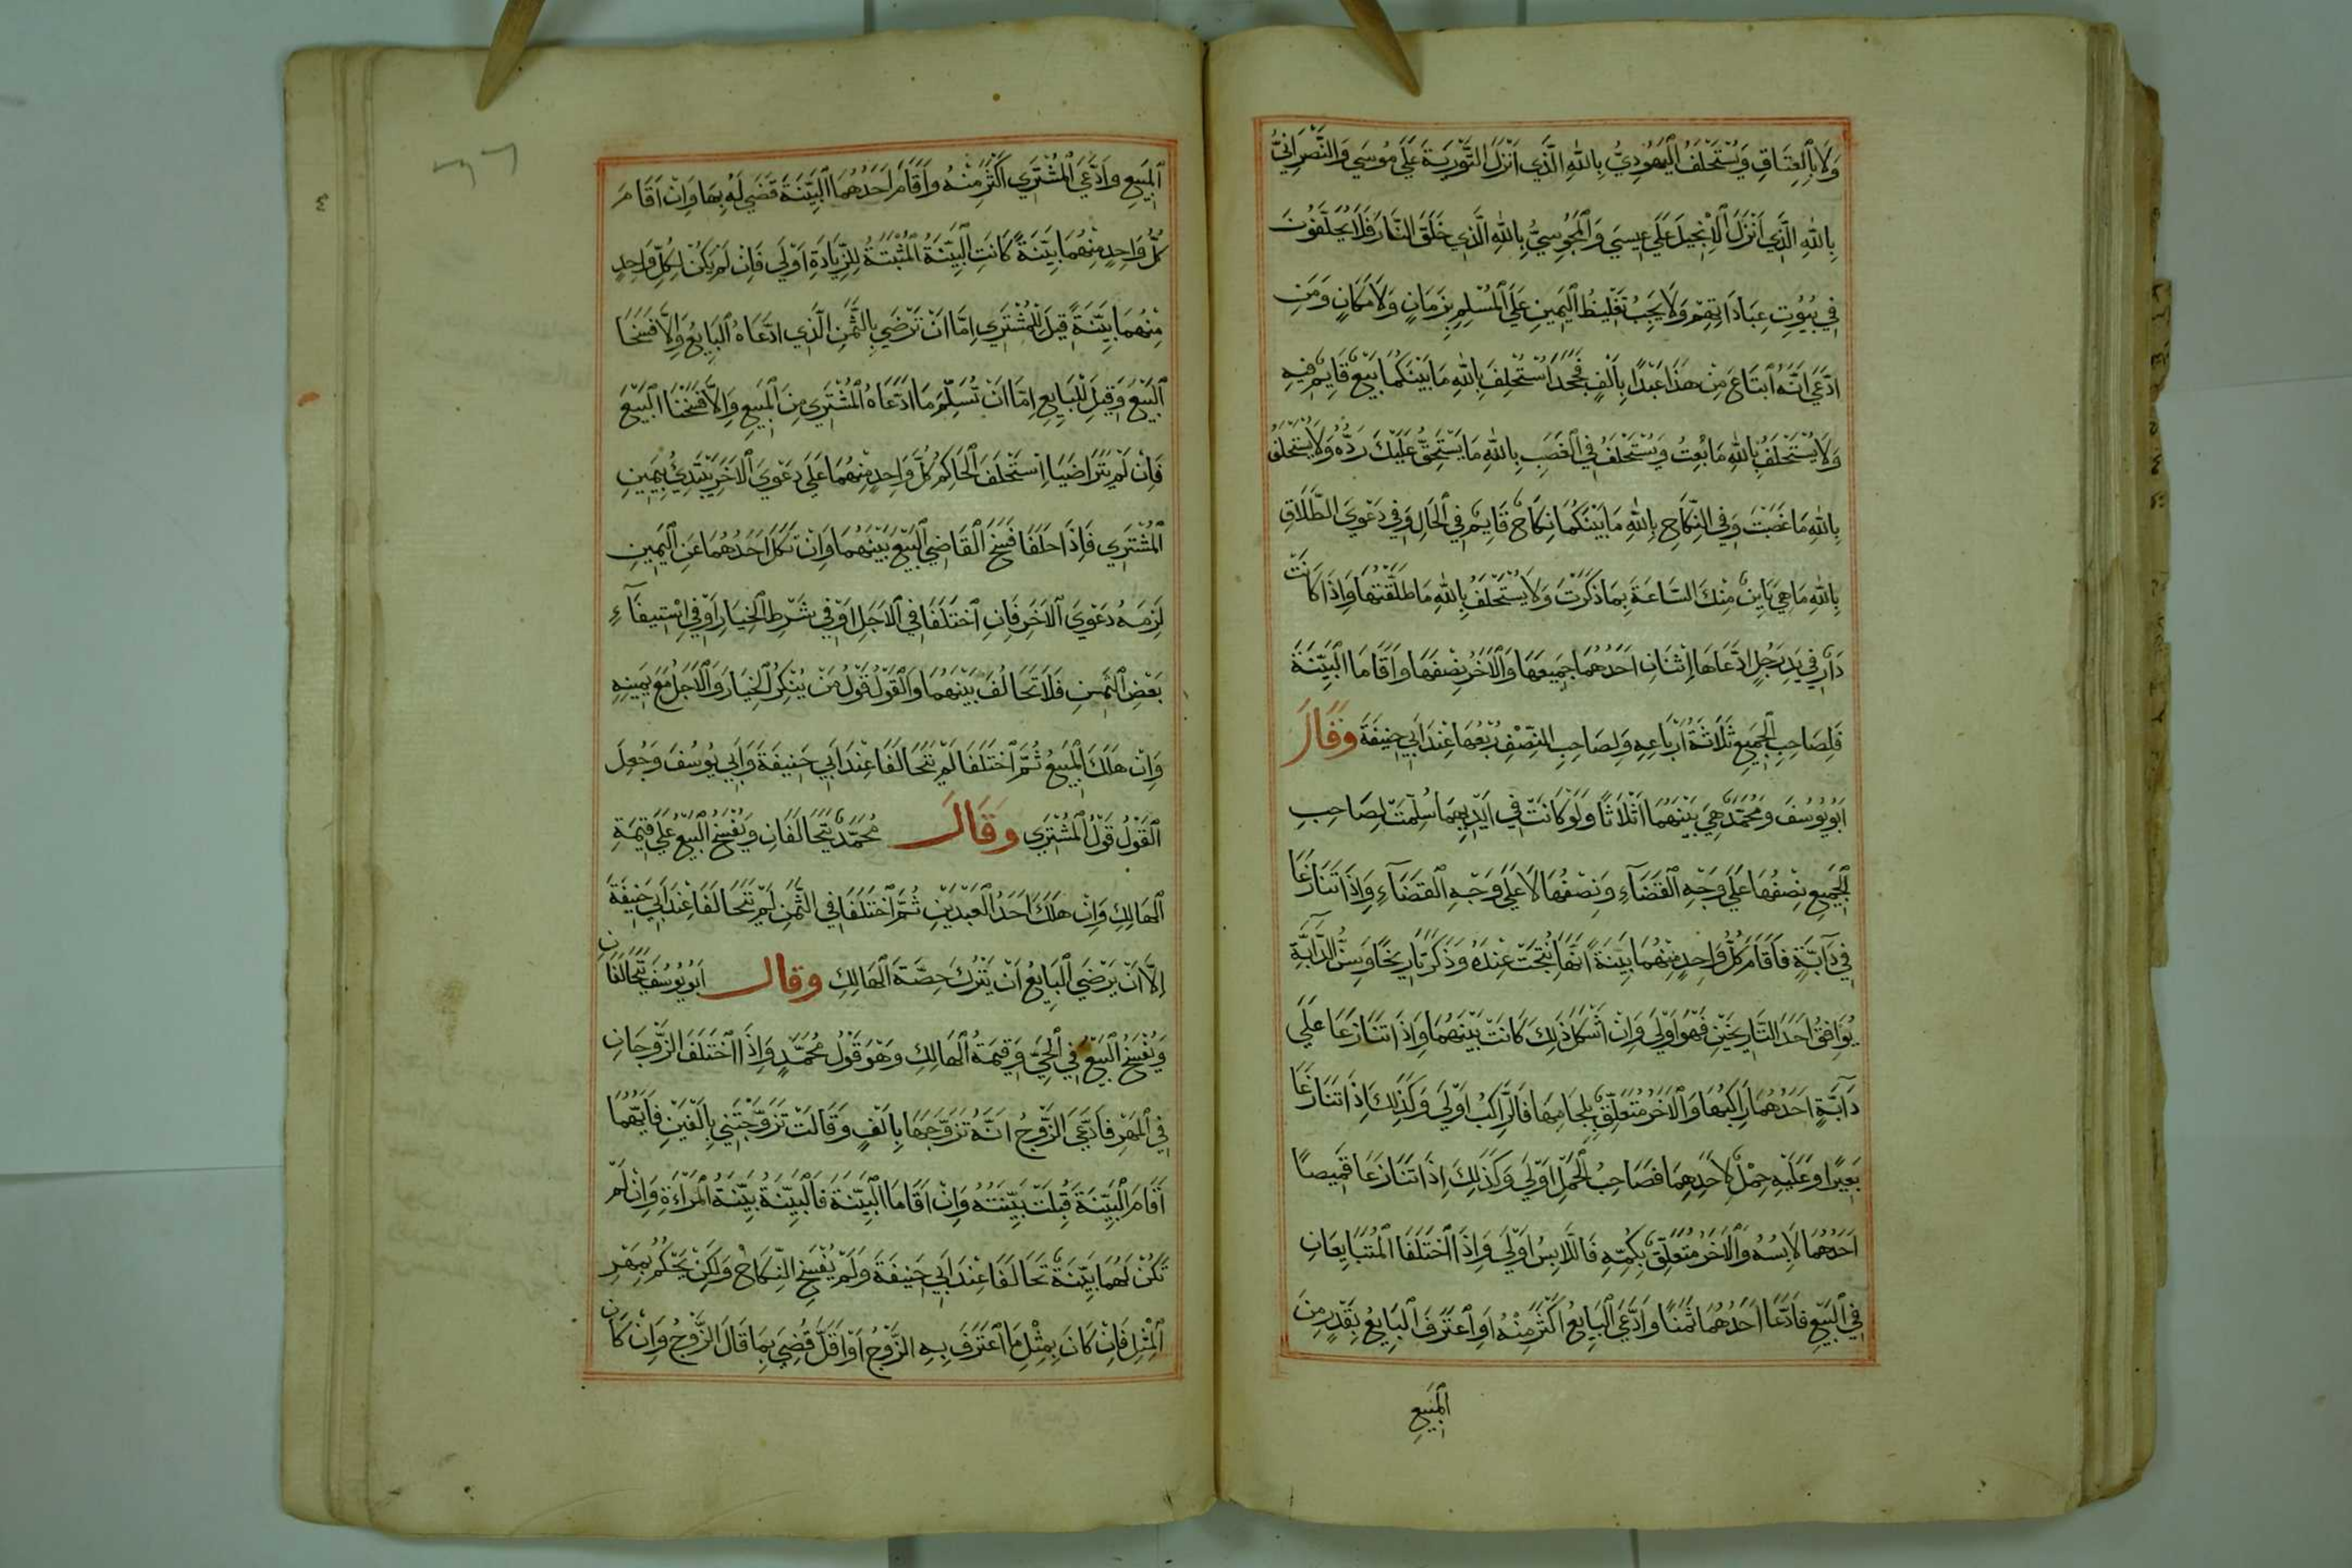 وَلَا بِالْعِتَاقِ وَيُسْتَحْلَفُ الْيَهُودِيُّ بِاللهِ الَّذِي اَنْزَلَ التَّوْرِيَةَ عَلَي مُوسَي وَالنَّصْرَانِيُّ
بِاللهِ الَّذِي اَنْزَلَ الْاِنْجِيلَ عَلَي عِيسَي وَالْمَجُوسِيُّ بِاللهِ الَّذِي خَلَقَ النَّارَ فَلَا يُحَلَّفُونَ
فِي بُيُوتِ عِبَادَاتِهِمْ وَلَا يَجِبُ تَغْلِيظُ الْيَمِينِ عَلَي الْمُسْلِمِ بِزَمَانٍ وَلَا مَكَانٍ وَمَنِ
ادَّعَي اَنَّهُ ابْتَاعَ مِنْ هَذَا عَبْدًا بِاَلْفٍ فَجَحَدَ اُسْتُحْلِفَ بِاللهِ مَا بَيْنَكُمَا بَيْعٌ قَايِمٌ فِيهِ
وَلَا يُسْتَحْلَفُ بِاللهِ مَا بِعْتُ وَيُسْتَحْلَفُ فِي الْغَصَبِ بِاللهِ مَا يَسْتَحِقُّ عَلَيْكَ رَدُّهُ وَلَا يُسْتَحْلَفُ
بِاللهِ مَا غَصَبْتَ وَفِي النِّكَاحِ بِاللهِ مَا بَيْنَكُمَا نِكَاحٌ قَايِمٌ فِي الْحَالِ وَفِي دَعْوَي الطَّلَاقِ
بِاللهِ مَا هِيَ بَايِنٌ مِنْكَ السَّاعَةَ بِمَا ذَكَرَتْ وَلَا يُسْتَحْلَفُ بِاللهِ مَا طَلَّقْتَهَا وَاِذَا كَانَتْ
دَارٌ فِي يَدِ رَجُلٍ ادَّعَاهَا اِثْنَانِ اَحَدُهُمَا جَمِيعَهَا وَالْاَخَرُ نِصْفَهَا وَاَقَامَا الْبَيِّنَةَ
فَلِصَاحِبِ الْجَمِيعِ ثَلَاثَةُ اَرْبَاعِهِ وَلِصَاحِبِ النِّصْفِ رُبْعُهَا عِنْدَ اَبِي حَنِيفَةَ وَقَالَ
اَبُويُوسُفَ وَمُحَمَّدٌ هِيَ بَيْنَهُمَا اَثْلَاثًا وَلَوْ كَانَتْ فِي اَيْدِيهِمَا سُلِّمَتْ لِصَاحِبِ
الْجَمِيعِ نِصْفُهَا عَلَي وَجْهِ الْقَضَاءِ وَنِصْفُهَا لَا عَلَي وَجْهِ الْقَضَاءِ وَاِذَا تَنَازَعَا
فِي دَآبَّةٍ فَاَقَامَ كُلُّ وَاحِدٍ مِنْهُمَا بَيِّنَةً اَنَّهَا نُتِجَتْ عِنْدَهُ وَذَكَرَ تَارِيخًا وَسِنُّ الدَّآبَّةِ
يُوَافِقُ اَحَدَ التَّارِيخَيْنِ فَهُوَ اَوْلَي وَاِنْ اَشْكَلَ ذَلِكَ كَانَتْ بَيْنَهُمَا وَاِذَا تَنَازَعَا عَلَي
دَآبَّةٍ اَحَدُهُمَا رَاكِبُهَا وَالْاَخَرُ مُتَعَلِّقٌ بِلِجَامِهَا فَالرَّاكِبُ اَوْلَي وَكَذَلِكَ اِذَا تَنَازَعَا
بَعِيرًا وَعَلَيْهِ حِمْلٌ لِاَحَدِهِمَا فَصَاحِبُ الْحِمْلِ اَوْلَي وَكَذَلِكَ اِذَا تَنَازَعَا قَمِيصًا
اَحَدُهُمَا لَابِسُهُ وَالْاَخَرُ مُتَعَلِّقٌ بِكُمِّهِ فَاللَّابِسُ اَوْلَي وَاِذَا اخْتَلَفَا الْمُتَبَايِعَانِ
فِي الْبَيْعِ فَادَّعَا اَحَدُهُمَا ثَمَنًا وَادَّعَي الْبَايِعُ اَكْثَرَ مِنْهُ اَوِ اعْتَرَفَ الْبَايِعُ بِقَدْرٍ مِنَ
الْمَبِيعِ
الْمَبِيعِ وَادَّعَي الْمُشْتَرِي اَكْثَرَ مِنْهُ وَاَقَامَ اَحَدُهُمَا الْبَيِّنَةَ قُضِيَ لَهُ بِهَا وَاِنْ اَقَامَ
كُلُّ وَاحِدٍ مِنْهُمَا بَيِّنَةً كَانَتِ الْبَيِّنَةُ الْمُثْبِتَةُ لِلزِّيَادَةِ اَوْلَي فَاِنْ لَمْ يَكُنْ لِكُلِّ وَاحِدٍ
مِنْهُمَا بَيِّنَةٌ قِيلَ لِلْمُشْتَرِي اِمَّا اَنْ تَرْضَي بِالثَّمَنِ الَّذِي ادَّعَاهُ الْبَايِعُ وَاِلَّا فَسَخْنَا
الْبَيْعَ وَقِيلَ لِلْبَايِعِ اِمَّا اَنْ تُسَلِّمَ مَا ادَّعَاهُ الْمُشْتَرِي مِنَ الْمَبِيعِ وَاِلَّا فَسَخْنَا الْبَيْعَ
فَاِنْ لَمْ يَتَرَاضَيَا اِسْتَحْلَفَ الْحَاكِمُ كُلَّ وَاحِدٍ مِنْهُمَا عَلَي دَعْوَي الْاَخَرِ يَبْتَدِيُ بِيَمِينِ
الْمُشْتَرِي فَاِذَا حَلَفَا فَسَخَ الْقَاضِي الْبَيْعَ بَيْنَهُمَا وَاِنْ نَكَلَ اَحَدُهُمَا عَنِ الْيَمِينِ
لَزِمَهُ دَعْوَي الْاَخَرِ فَاِنِ اخْتَلَفَا فِي الْاَجَلِ اَوْ فِي شَرْطِ الْخِيَارِ اَوْ فِي اسْتِيفَآءِ
بَعْضِ الثَّمَنِ فَلَا تَحَالُفَ بَيْنَهُمَا وَالْقَوْلُ قَوْلُ مَنْ يُنْكِرُ الْخِيَارَ وَالْاَجَلَ مَعَ يَمِينِهِ
وَاِنْ هَلَكَ الْمَبِيعُ ثُمَّ اخْتَلَفَا لَمْ يَتَحَالَفَا عِنْدَ اَبِي حَنِيفَةَ وَاَبِي يُوسُفَ وَجُعِلَ
الْقَوْلُ قَوْلُ الْمُشْتَرِي وَقَالَ مُحَمَّدٌ يَتَحَالَفَانِ وَيُفْسَخُ الْبَيْعُ عَلَي قِيمَةِ
الْهَالِكِ وَاِنْ هَلَكَ اَحَدُ الْعَبْدَيْنِ ثُمَّ اخْتَلَفَا فِي الثَّمَنِ لَمْ يَتَحَالَفَا عِنْدَ اَبِي حَنِيفَةَ
اِلَّا اَنْ يَرْضَي الْبَايِعُ اَنْ يَتْرُكَ حِصَّةَ الْهَالِكِ وقال اَبُويُوسُفَ يَتَحَالَفَانِ
وَيُفْسَخُ الْبَيْعُ فِي الْحَيِّ وَقِيمَةُ الْهَالِكِ وَهُوَ قَوْلُ مُحَمَّدٍ وَاِذَا اخْتَلَفَ الزَّوْجَانِ
فِي الْمَهْرِ فَادَّعَي الزَّوْجُ اَنَّهُ تَزَوَّجَهَا بِاَلْفٍ وَقَالَتْ تَزَوَّجْتَنِي بِاَلْفَيْنِ فَاَيُّهُمَا
اَقَامَ الْبَيِّنَةَ قُبِلَتْ بَيِّنَتُهُ وَاِنْ اَقَامَا الْبَيِّنَةَ فَالْبَيِّنَةُ بَيِّنَةُ الْمَرْاَةِ وَاِنْ لَمْ
تَكُنْ لَهُمَا بَيِّنَةٌ تَحَالَفَا عِنْدَ اَبِي حَنِيفَةَ وَلَمْ يُفْسَخِ النِّكَاحُ وَلَكِنْ يُحْكَمُ بِمَهْرِ
الْمِثْلِ فَاِنْ كَانَ بِمِثْلِ مَا اعْتَرَفَ بِهِ الزَّوْجُ اَوْ اَقَلَّ قُضِيَ بِمَا قَالَ الزَّوْجُ وَاِنْ كَانَ